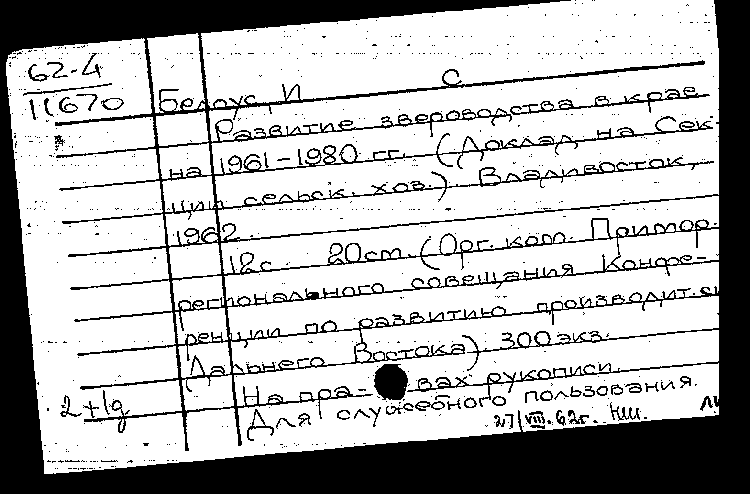 62-4
11670
Белоус, И С
Развитие звероводства в крае
на 1961-1980 гг. (Доклад на Сек-
ции сельск. хоз.). Владивосток,
1962.
12с. 20см. (Орг. ком. Примор.
регионального совещания Конфе-
ренции по развитию производит. си
Дальнего Востока) 300 экз.
На пра- вах рукописи.
Для служебного пользования.
2+1д
27/VIII.62г.